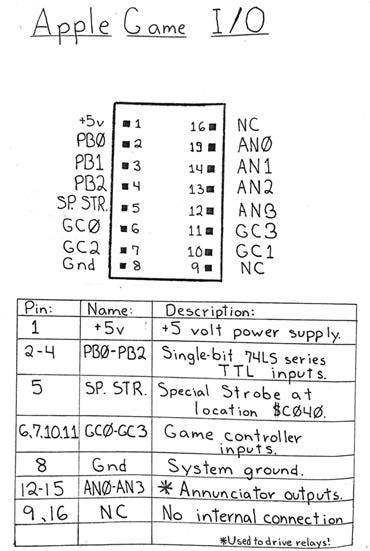 Apple Game I/O
+5v 1 16 NC
PB0 2 15 AN0
PB1 3 14 AN1
PB2 4 13 AN2
SP. STR. 5 12 AN3
GC0 6 11 GC3
GC2 7 10 GC1
Gnd 8 9 NC
Pin: Name: Description:
1 +5v +5 volt power supply.
2-4 PB0-PB2 Single-bit 74LS series
TTL inputs.
5 SP. STR. Special Strobe at
location $C040.
6,7,10,11 GC0-GC3 Game controller
inputs.
8 Gnd System ground.
12-15 AN0-AN3 * Annunciator outputs.
9,16 NC No internal connection
*Used to drive relays!